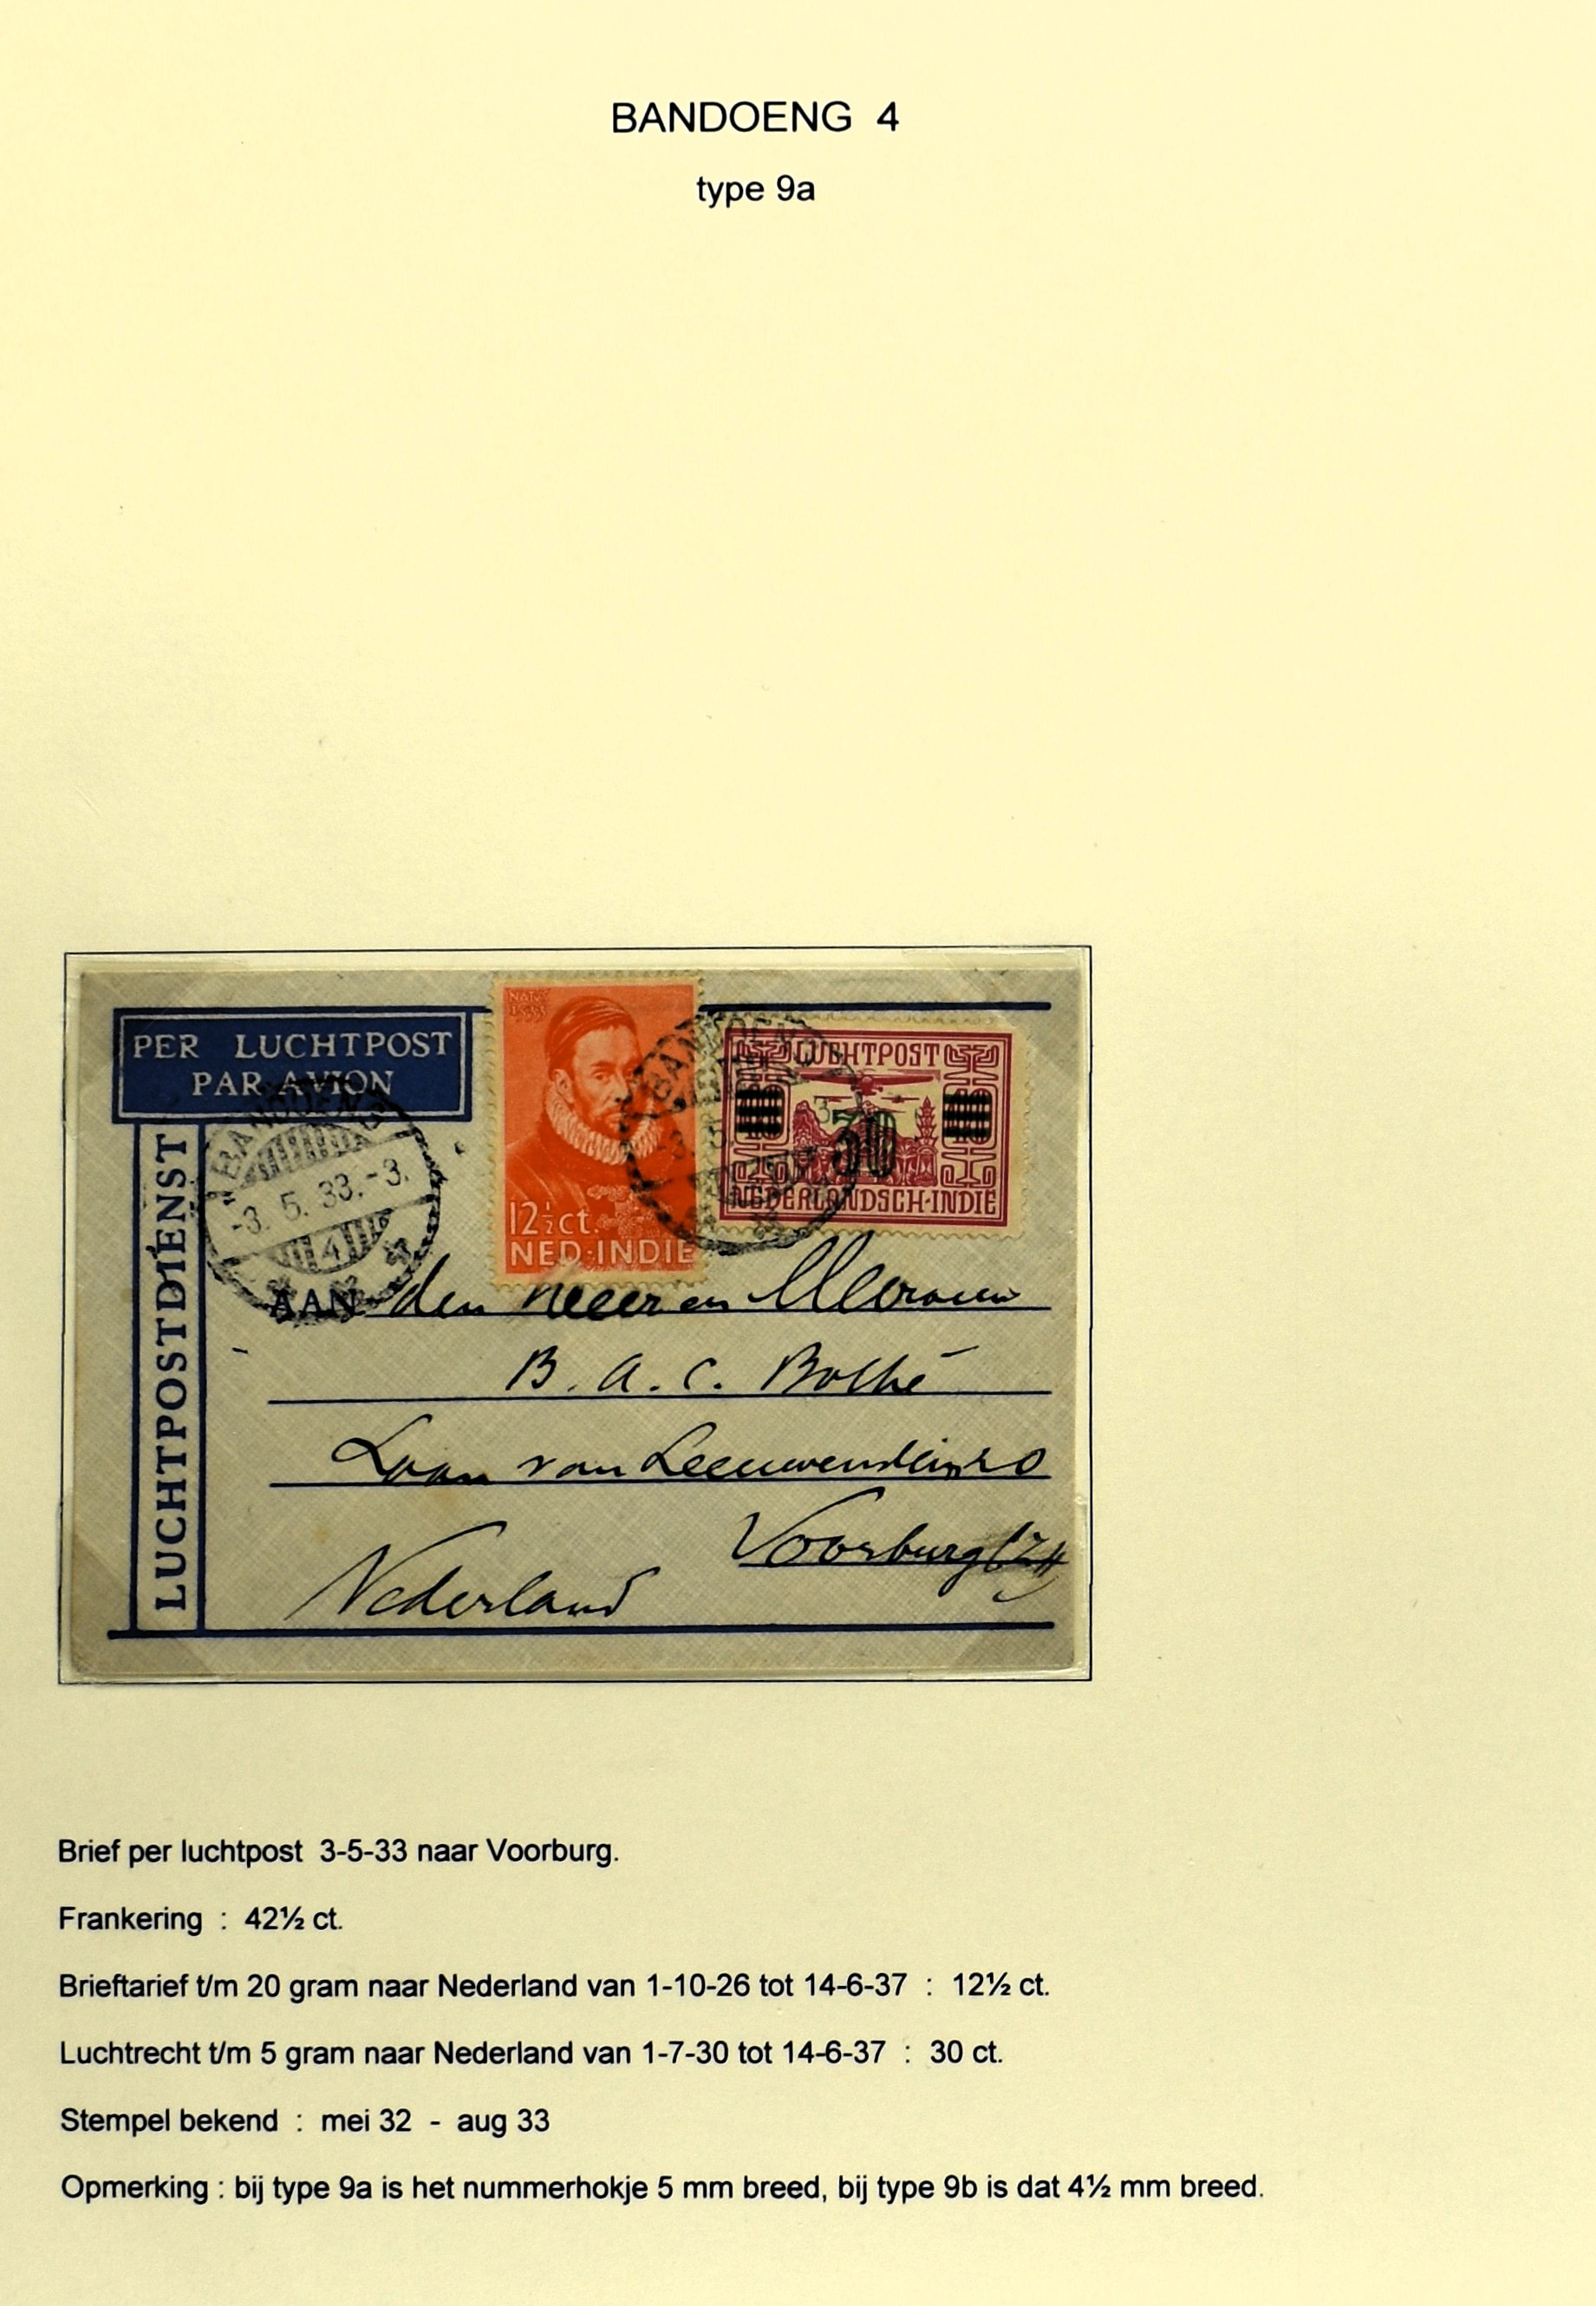 BANDOENG 4
type 9a
PER LUCHTPOST
PAR AVION
LUCHTPOSTDIENST
BANDOENG
-3. 5. 33.-3.
4
12½ct.
NED·INDIE
BANDOENG
LUCHTPOST
30
NEDERLANDSCH-INDIE
AAN den Heer en Mevrouw
B. A. C. Bothé
Laan van Leeuwenstein
Voorburg (ZH)
Nederland
Brief per luchtpost 3-5-33 naar Voorburg.
Frankering : 42½ ct.
Brieftarief t/m 20 gram naar Nederland van 1-10-26 tot 14-6-37 : 12½ ct.
Luchtrecht t/m 5 gram naar Nederland van 1-7-30 tot 14-6-37 : 30 ct.
Stempel bekend : mei 32 - aug 33
Opmerking : bij type 9a is het nummerhokje 5 mm breed, bij type 9b is dat 4½ mm breed.